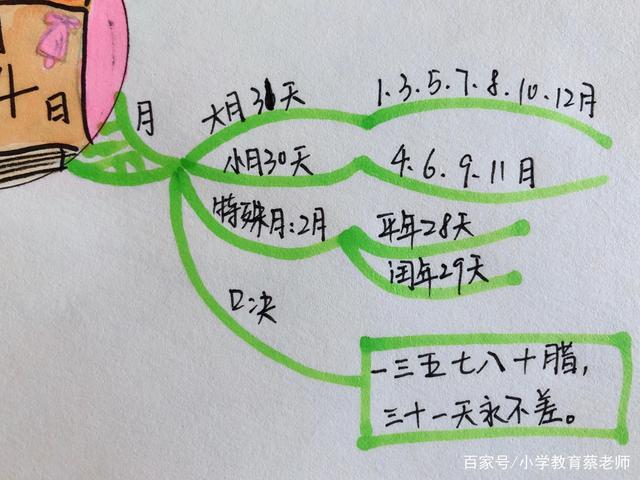 日
月
大月31天
1.3.5.7.8.10.12月
小月30天
4.6.9.11月
特殊月:2月
平年28天
闰年29天
口决
一三五七八十腊,
三十一天永不差。
百家号/小学教育蔡老师